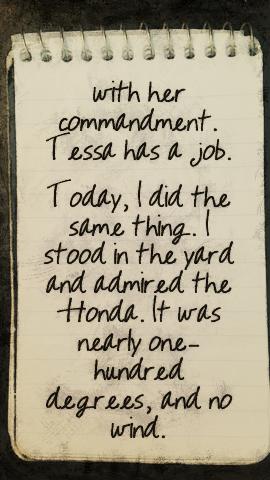 with her
commandment.
Tessa has a job.
Today, I did the
same thing. I
stood in the yard
and admired the
Honda. It was
nearly one-
hundred
degrees, and no
wind.